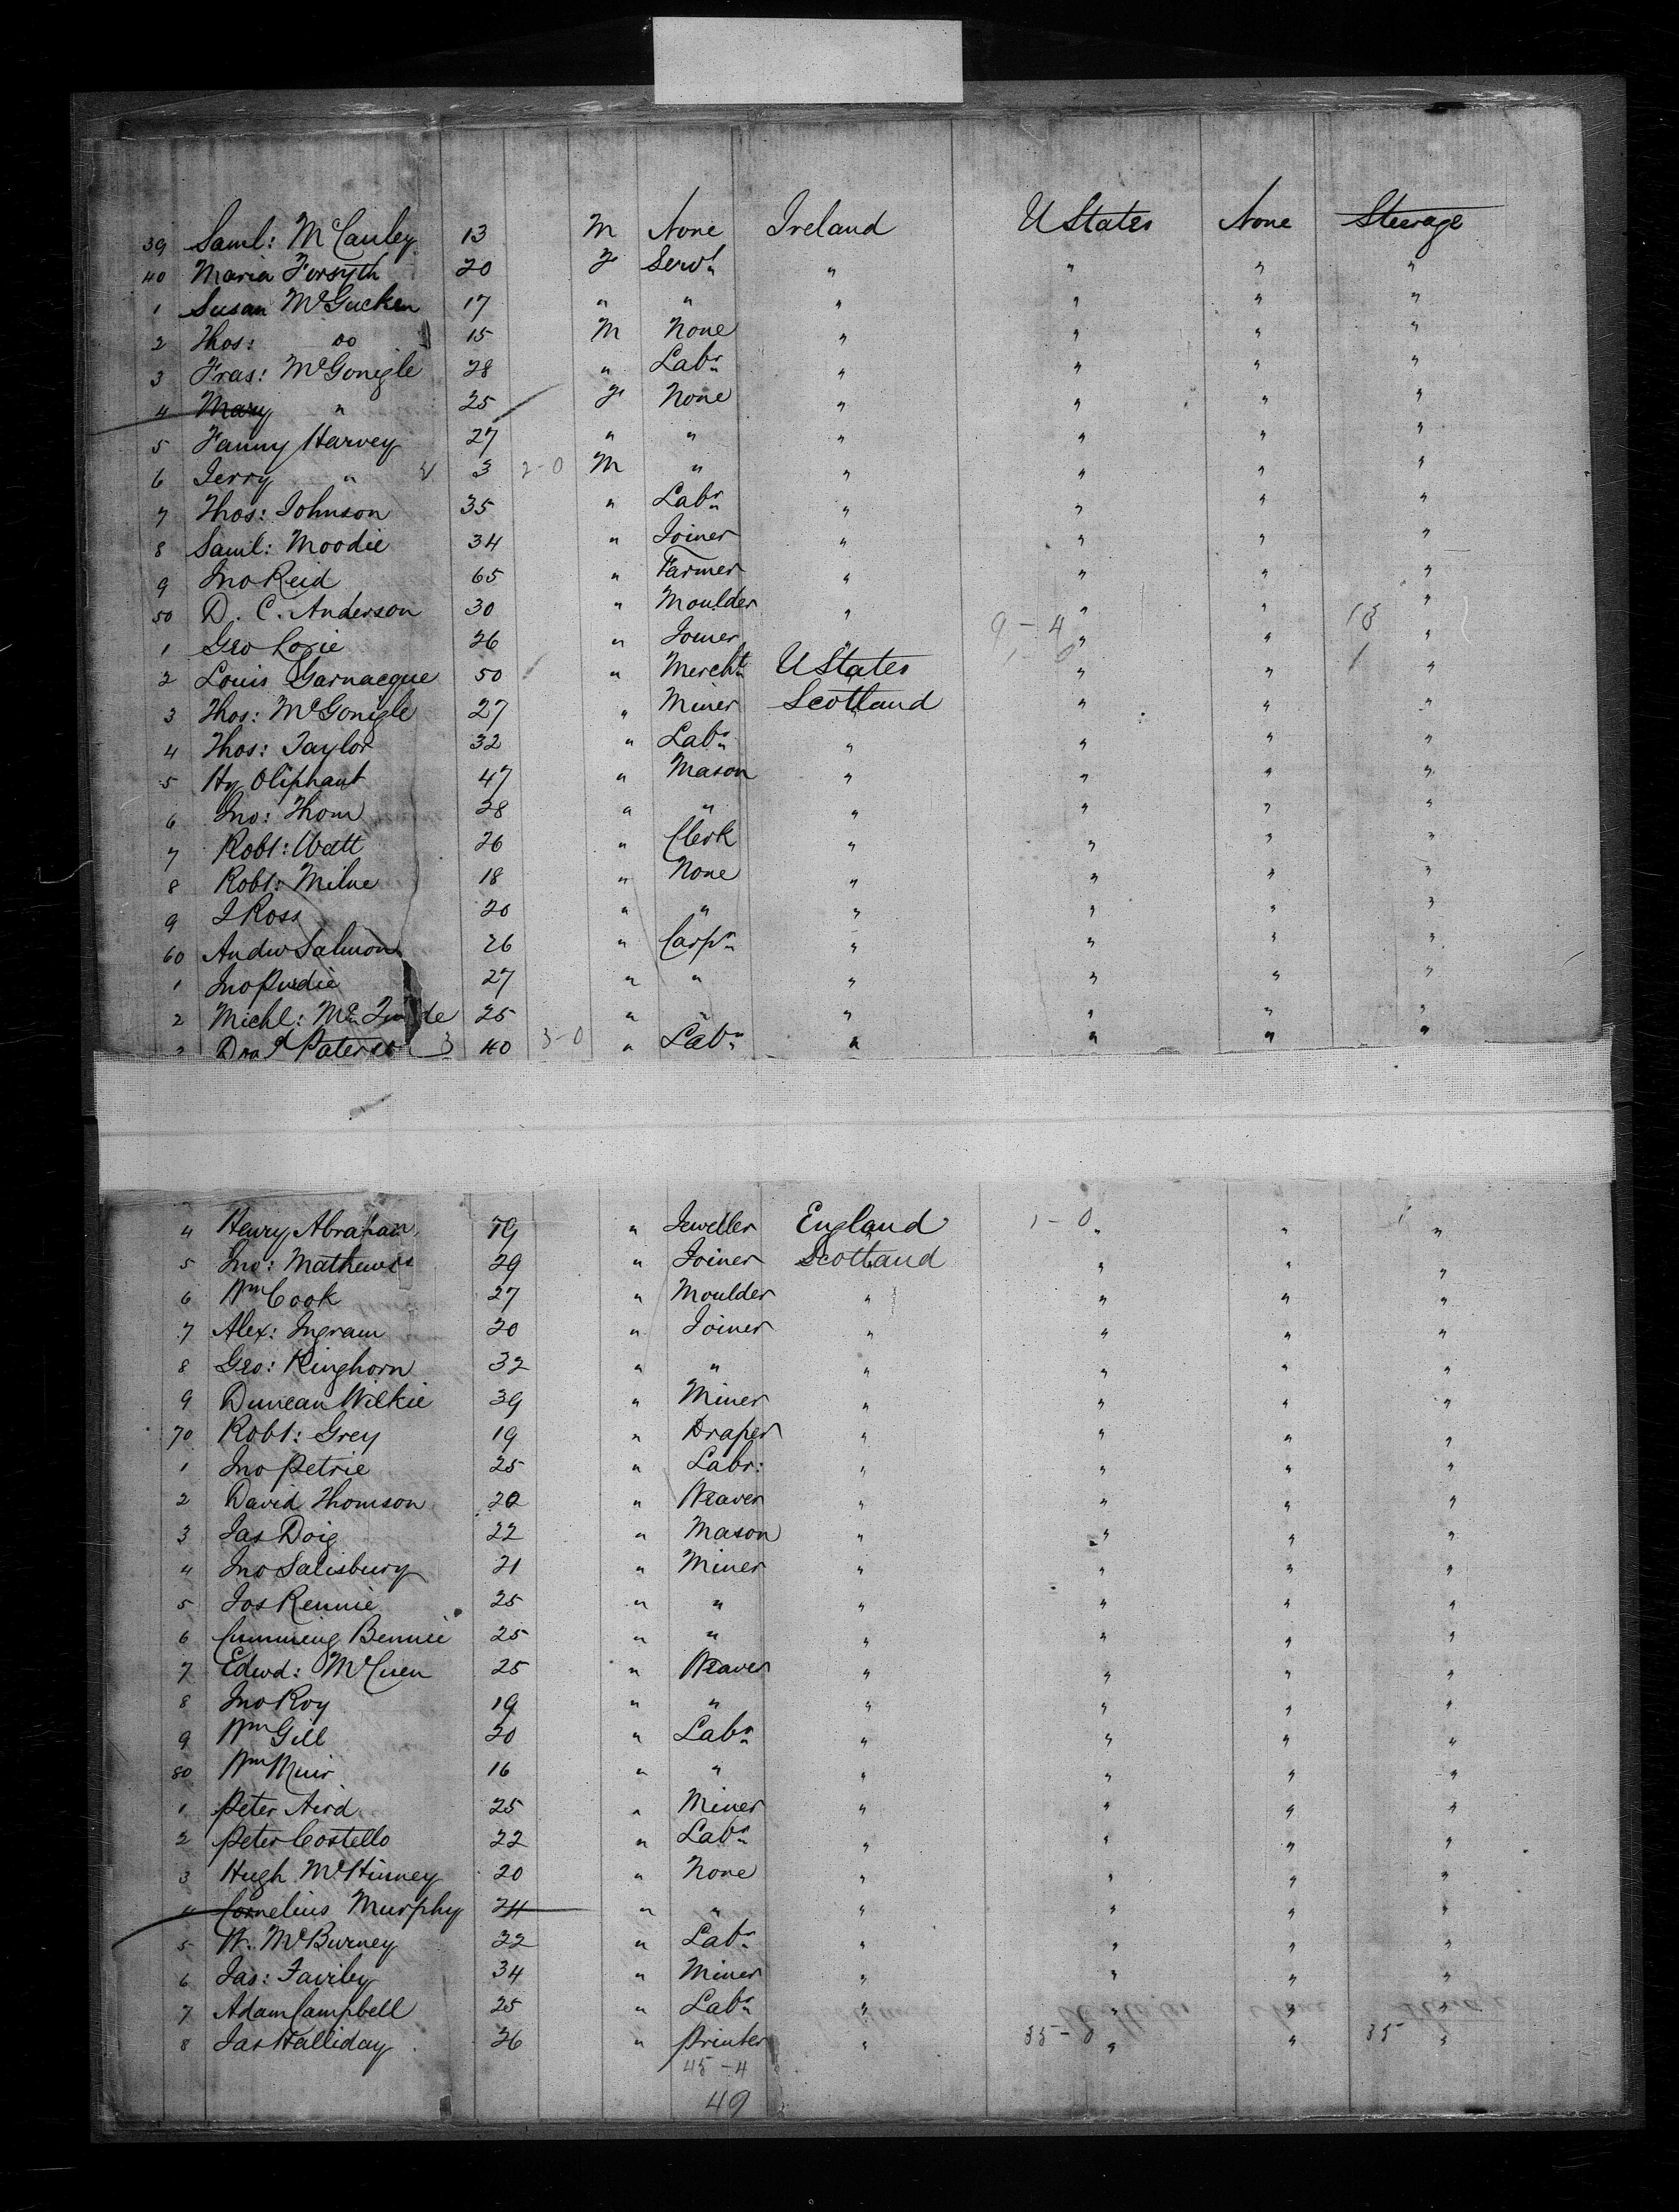 39 Saml: McCauley 13 M None Ireland UStates None Steerage
40 Maria Forsyth 20 F Servt " " " "
1 Susan McGucken 17 " " " " " "
2 Thos: do 15 M None " " " "
3 Fras: McGonigle 28 " Labr " " " "
4 Mary " 25 F None " " " "
5 Fanny Harvey 27 " " " " " "
6 Jerry " 3 2-0 M " " " " "
7 Thos: Johnson 35 " Labr " " " "
8 Saml: Moodie 34 " Joiner " " " "
9 Jno Reid 65 " Farmer " " " "
50 D. C. Anderson 30 " Moulder " " " "
1 Geo Lorie 26 " Joiner " 9-4 " " 13 "
2 Louis Garnacque 50 " Mercht UStates " " 1 "
3 Thos: McGonigle 27 " Miner Scotland " " "
4 Thos: Taylor 32 " Labr " " " "
5 Hy Oliphant 47 " Mason " " " "
6 Jno: Thom 28 " " " " " "
7 Robt: Watt 26 " Clerk " " " "
8 Robt: Milne 18 " None " " " "
9 J Ross 20 " " " " " "
60 Andw Salmon 26 " Carpr " " " "
1 Jno Purdie 27 " " " " " "
2 Michl: Mc 25 " " " " " "
3 Paterson 3 40 3-0 " Labr " " " "
4 Henry Abraham 19 " Jeweller England 1-0 " " 1 "
5 Jno: Mathews 29 " Joiner Scotland " " "
6 Wm Cook 27 " Moulder " " " "
7 Alex: Ingram 20 " Joiner " " " "
8 Geo: Kinghorn 32 " " " " " "
9 Duncan Wilkie 39 " Miner " " " "
70 Robt: Grey 19 " Draper " " " "
1 Jno Petrie 25 " Labr: " " " "
2 David Thomson 20 " Weaver " " " "
3 Jas Doig 22 " Mason " " " "
4 Jno Salisbury 21 " Miner " " " "
5 Jos Rennie 25 " " " " " "
6 Cumming Bennie 25 " " " " " "
7 Edwd: McCuen 25 " Weaver " " " "
8 Jno Roy 19 " " " " " "
9 Wm Gill 20 " Labr " " " "
80 Wm Muir 16 " " " " " "
1 Peter Aird 25 " Miner " " " "
2 Peter Costello 22 " Labr " " " "
3 Hugh McHinney 20 " None " " " "
4 Cornelius Murphy 24 " " " " " "
5 W. McBurney 22 " Labr " " " "
6 Jas: Fairley 34 " Miner " " " "
7 Adam Campbell 25 " Labr " " " "
8 Jas Halliday 26 " Printer " 35-0 " " 35 "
45-4
49